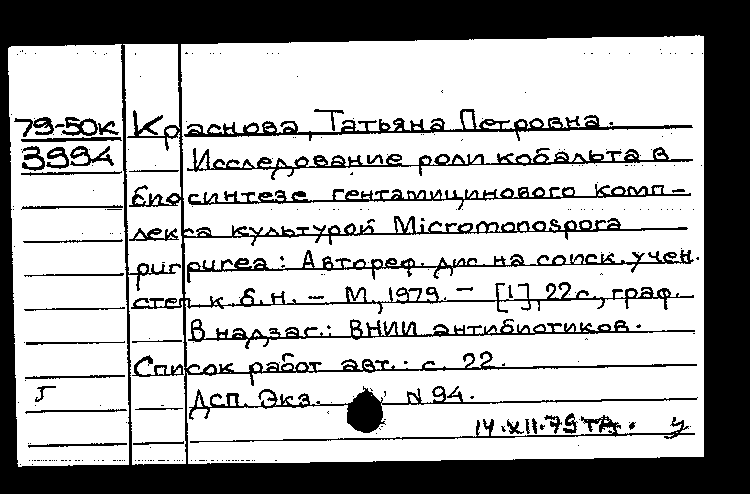 79-50к Краснова, Татьяна Петровна.
3994 Исследование роли кобальта в
биосинтезе гентамицинового комп-
лекса культурой Micromonospora
purpurea: Автореф. дис. на соиск. учен.
степ к. б. н. - М., 1979. - [1], 22 с., граф.
В надзаг.: ВНИИ антибиотиков.
Список работ авт.: с. 22.
Дсп. Экз. N 94.
14.XII.79